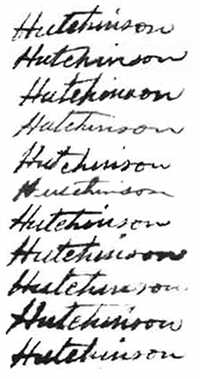 Hutchinson
Hutchinson
Hutchinson
Hutchinson
Hutchinson
Hutchinson
Hutchinson
Hutchinson
Hutchinson
Hutchinson
Hutchinson